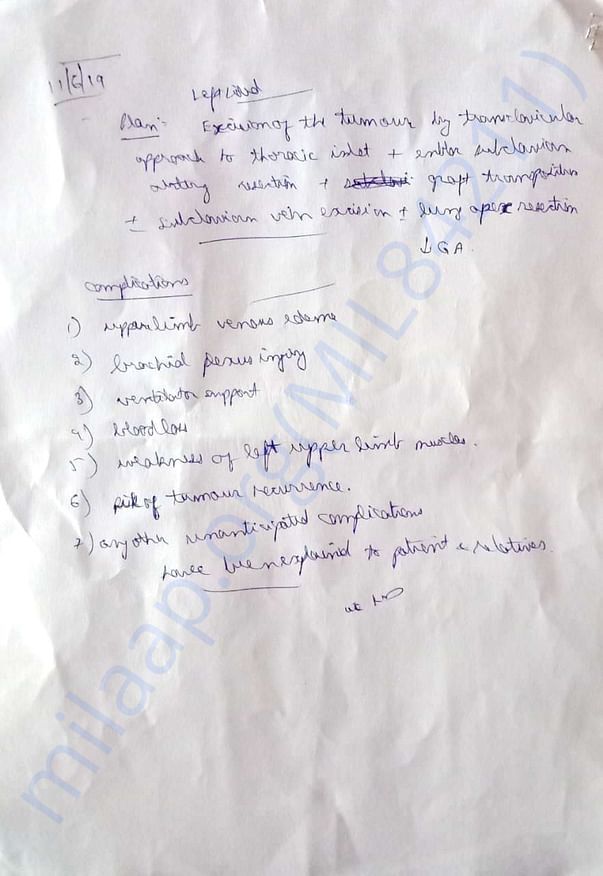 11/6/19
Left sided
Plan:- Excision of the tumour by transclavicular
approach to thoracic inlet + enbloc subclavian
artery resection + graft transposition
± subclavian vein excision ± lung apex resection
↓ GA.
Complications
1) upper limb venous edema
2) brachial plexus injury
3) ventilator support
4) blood loss
5) weakness of left upper limb muscles.
6) risk of tumour recurrence.
7) any other unanticipated complications
have been explained to patient & relatives.
milaap.org(MIL84211)